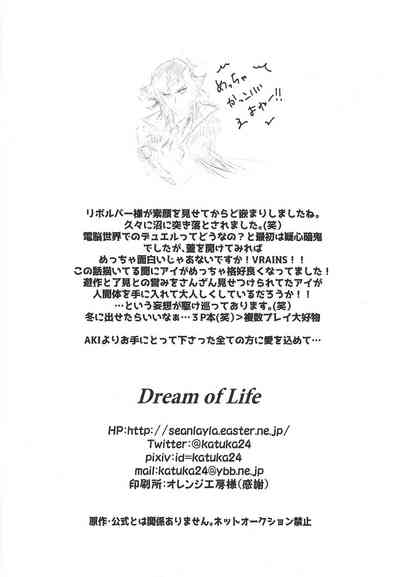 めっちゃ
かっこいい
よねー!!
リボルバー様が素顔を見せてからど嵌まりしましたね。
久々に沼に突き落とされました。(笑)
電脳世界でのデュエルってどうなの?と最初は疑心暗鬼
でしたが、蓋を開けてみれば
めっちゃ面白いじゃあないですか!VRAINS!!
この話描いてる間にアイがめっちゃ格好良くなってました!
遊作と了見との営みをさんざん見せつけられてたアイが
人間体を手に入れて大人しくしているだろうか!!
…という妄想が駆け巡っております。(笑)
冬に出せたらいいなぁ…3P本(笑)>複数プレイ大好物
AKIよりお手にとって下さった全ての方に愛を込めて…
Dream of Life
HP:http://seanlayla.easter.ne.jp/
Twitter:@katuka24
pixiv:id=katuka24
mail:katuka24@ybb.ne.jp
印刷所:オレンジ工房様(感謝)
原作・公式とは関係ありません。ネットオークション禁止